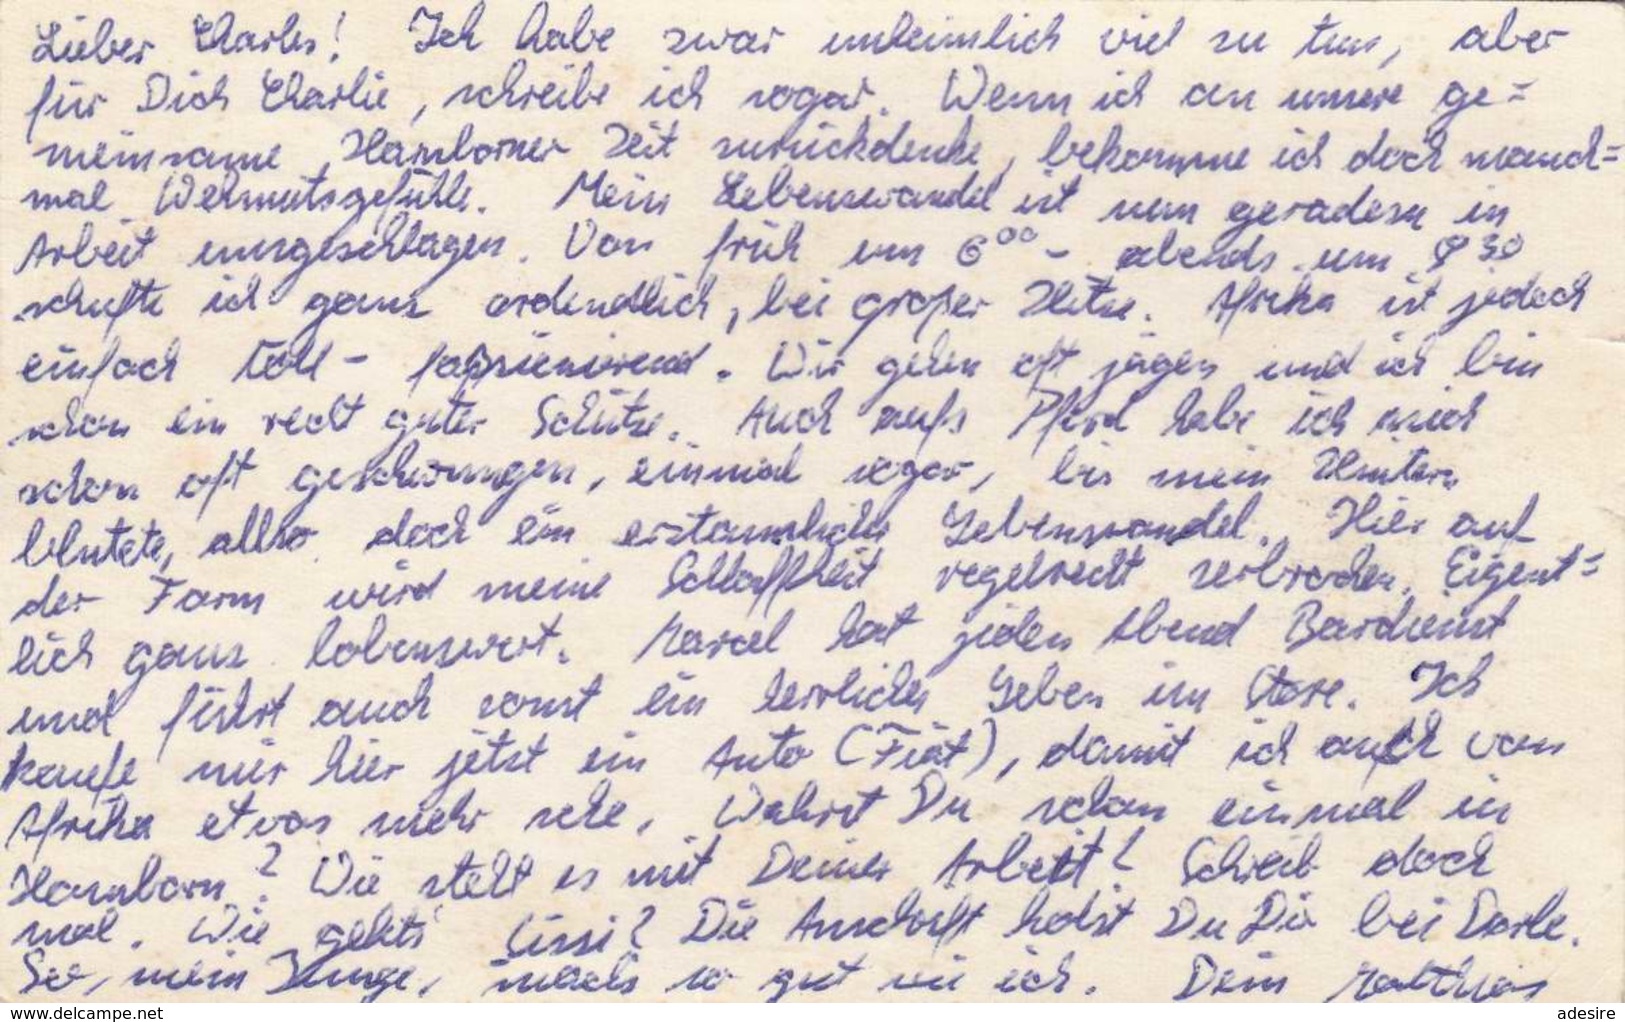 Lieber Charles! Ich habe zwar unheimlich viel zu tun, aber
für Dich Charlie, schreibe ich sogar. Wenn ich an unsere ge=
meinsame Hamborner Zeit zurückdenke, bekomme ich doch manch=
mal Wehmutsgefühle. Mein Lebenswandel ist nun geradezu in
Arbeit umgeschlagen. Von früh um 6⁰⁰ - abends um 9 30
schufte ich ganz ordendlich, bei großer Hitze. Afrika ist jedoch
einfach toll - faßzienirend. Wir gehen oft jagen und ich bin
schon ein recht guter Schütze. Auch aufs Pferd habe ich mich
schon oft geschwungen, einmal sogar, bis mein Hintern
blutete, allso doch ein erstaunlicher Lebenswandel. Hier auf
der Farm wird meine Schlaffheit regelrecht zerbrochen. Eigent=
lich ganz lobenswert. Marcel hat jeden Abend Bardienst
und führt auch sonst ein herrliches Leben im Store. Ich
kaufe mir hier jetzt ein Auto (Fiat), damit ich auch von
Afrika etwas mehr sehe. Wahrst Du schon einmal in
Hamborn? Wie steht es mit Deiner Arbeit? Schreib doch
mal. Wie gehts Sissi? Die Anschrift holst Du Dir bei Dorle.
So, mein Junge, machs so gut wie ich. Dein Matthias
www.delcampe.net
adesire